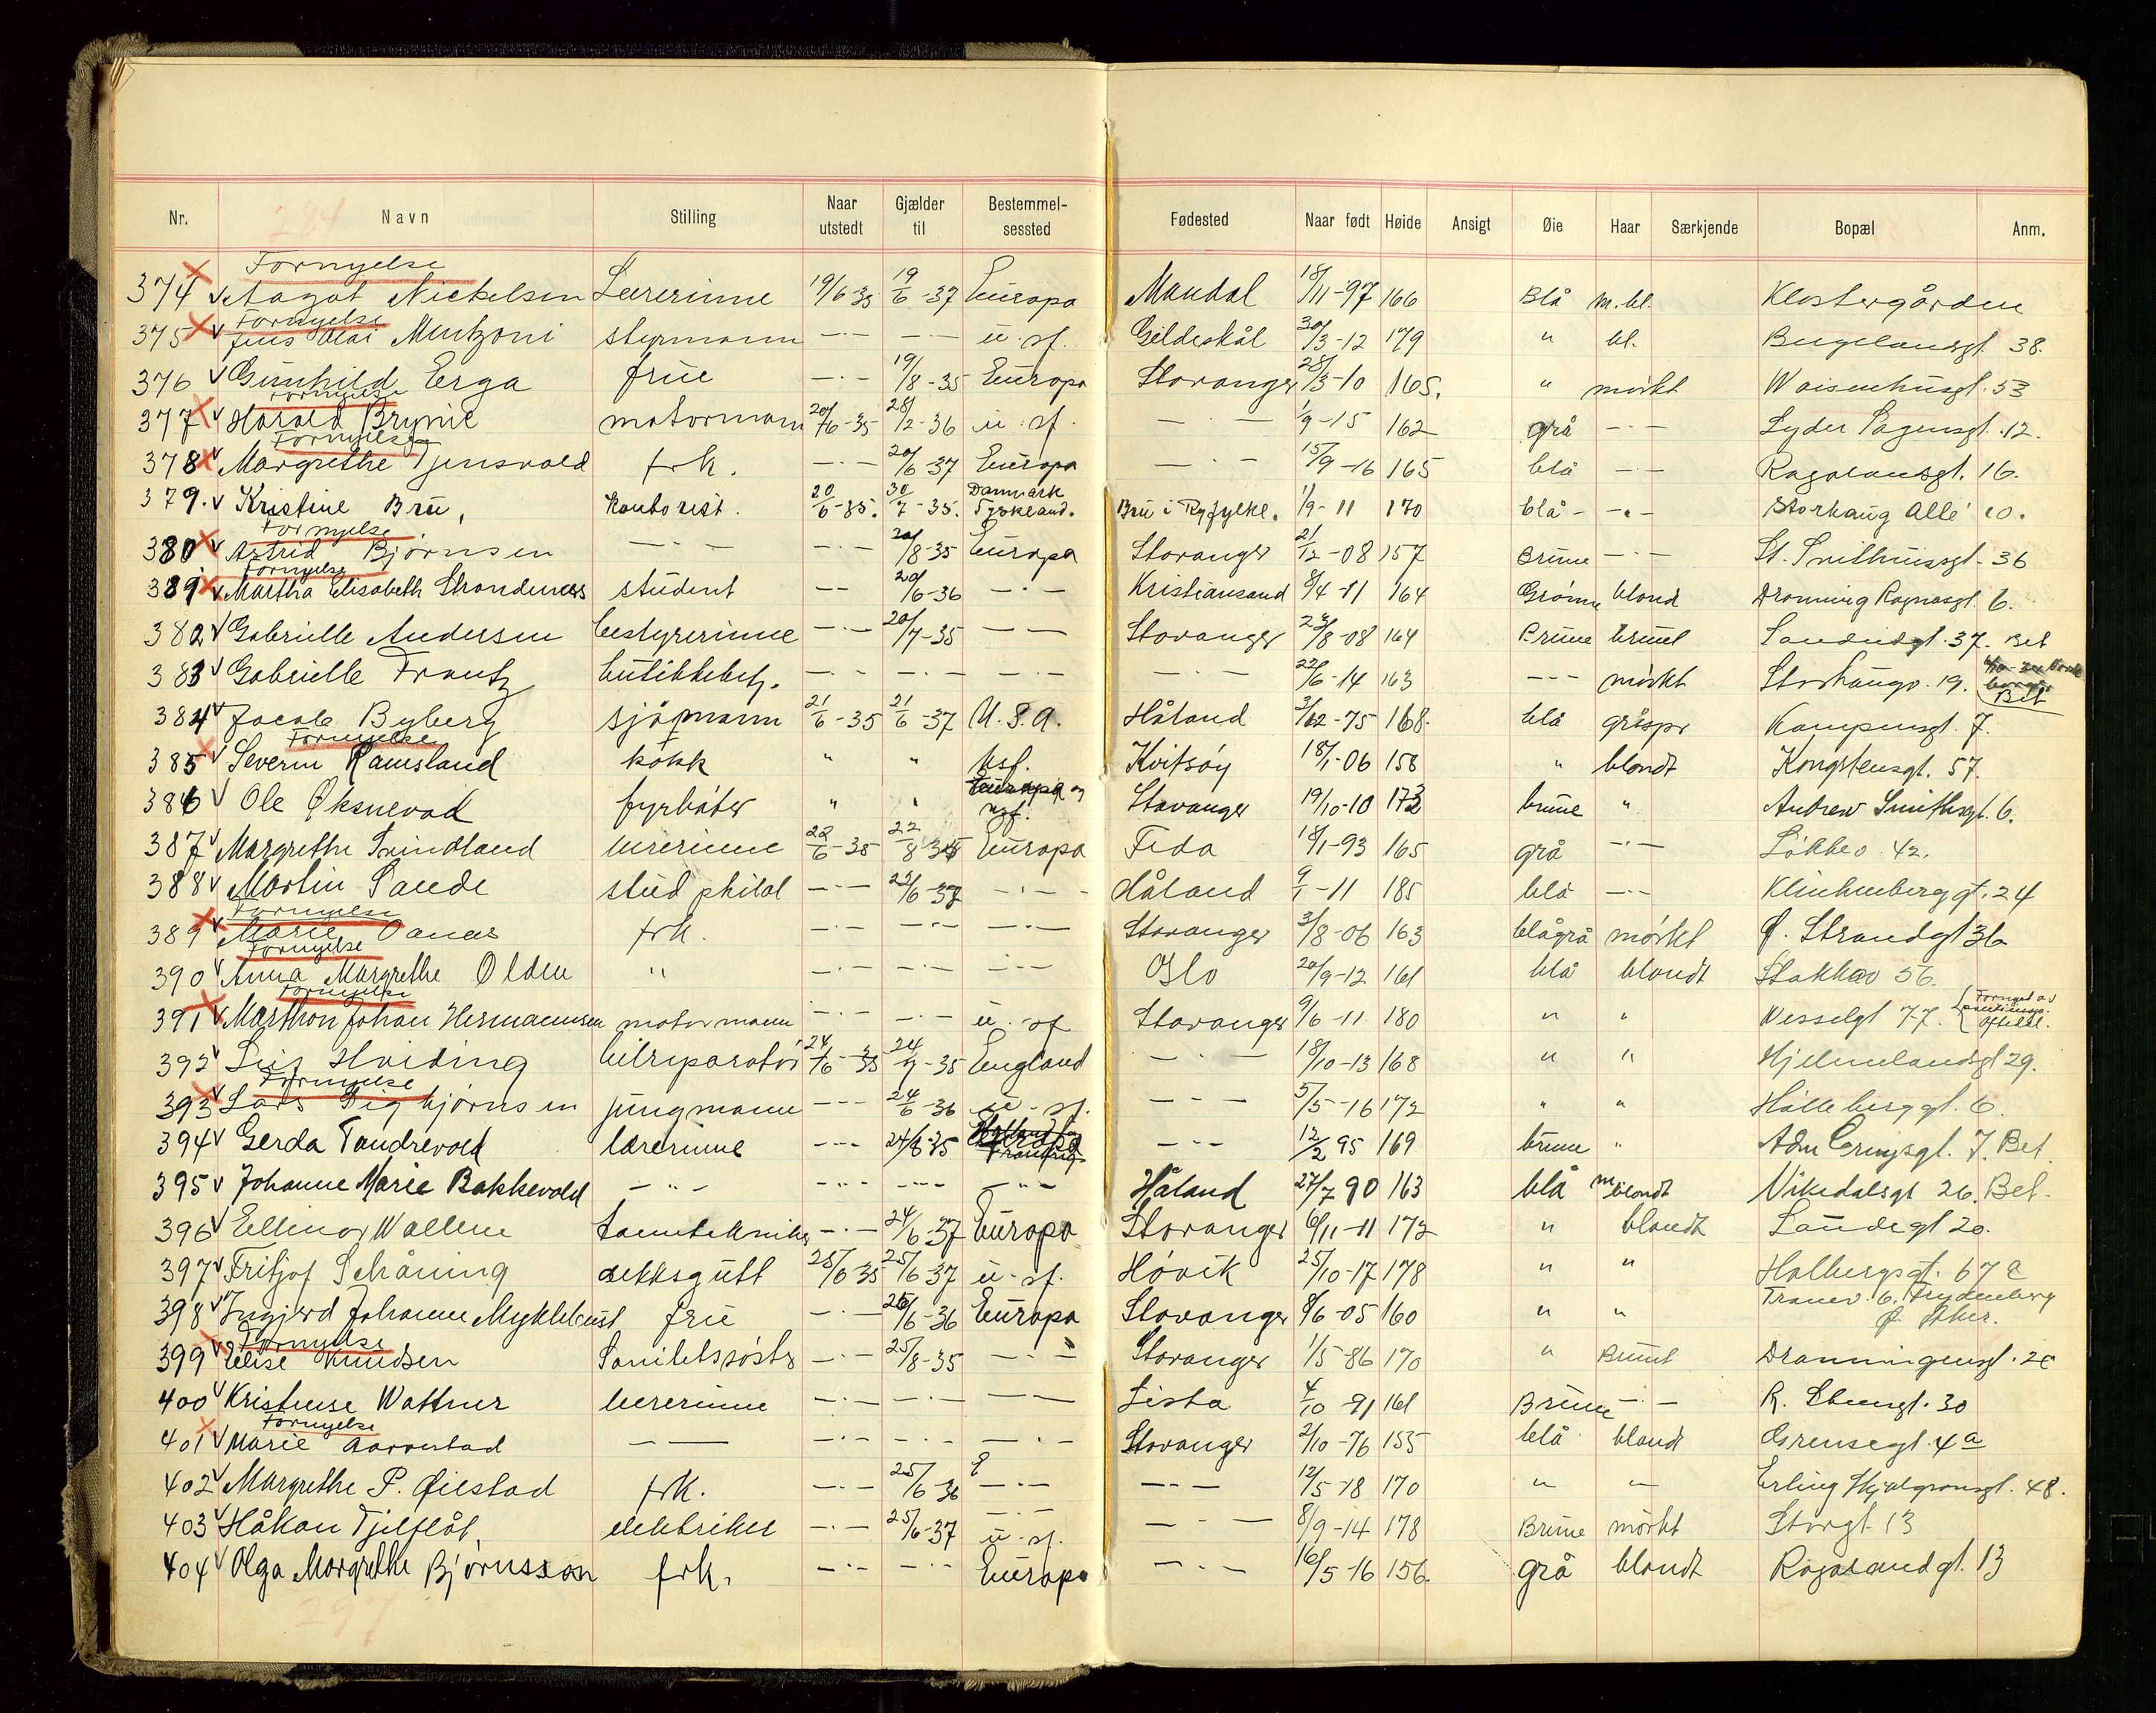 284
Nr. Navn Stilling Naar utstedt Gjælder til Bestemmelsessted Fødested Naar født Høide Ansigt Øie Haar Særkjende Bopæl Anm.
Fornyelse
374 Aagot Nickelsen Lærerinne 19/6-35 19/6-37 Europa Mandal 18/11-97 166 Blå m.bl. Klostergården
Fornyelse
375 Jens Olai Muntzoni styrmann —·— —·— u.sf. Gildeskål 30/3-12 179 " bl. Bugelandsgt. 38.
376 Gunhild Erga frue —·— 19/8-35 Europa Stavanger 28/3-10 165. " mørkt Waisenhusgt. 53
Fornyelse
377 Harald Brynie motormann 20/6-35 28/12-36 u.sf. —·— 1/9-15 162 grå —·— Lyder Sagensgt. 12.
Fornyelse
378 Margrethe Tjensvold frk. —·— 20/6-37 Europa —·— 15/9-16 165 blå —·— Rogalandsgt. 16.
379. Kristine Bru, kontorist. 20/6-35. 30/7-35. Danmark Tyskland. Bru i Ryfylke. 1/9-11 170 blå- —·— Storhaug Allé 10.
Fornyelse
380 Astrid Bjørnsen —·— —·— 20/8-35 Europa Stavanger 21/12-08 157 Brune —·— St. Svithunsgt. 36
Fornyelse
381 Martha Elisabeth Strandenæs student —— 20/6-36 —·— Kristiansand 8/4-11 164 Grønne blond Dronning Ragnasgt. 6.
382 Gabrielle Andersen bestyrerinne —·— 20/7-35 —— Stavanger 23/8-08 164 Brune brunt Sandsdgt. 37. Bet
383 Gabrielle Frantz butikkbetj. —·— —·— —·— —·— 22/6-14 163 --- mørkt Storhaugv. 19. Bet
384 Jacob Byberg sjømann 21/6-35 21/6-37 U.S.A. Håland 3/12-75 168. blå gråspr Kampensgt. 7.
Fornyelse
385 Severin Ramsland kokk " " usf. Kvitsøy 18/1-06 158 " blondt Kongstensgt. 57.
386 Ole Øksnevad fyrbøter " " Europa og usf. Stavanger 19/10-10 172 brune " Andrew Smithsgt. 6.
387 Margrethe Svindland lærerinne 22/6-35 22/8 35 Europa Feda 18/1-93 165 grå —·— Løkkev. 42.
388 Martin Sande stud philol —·— 22/6-37 —·— Håland 9/1-11 185 blå —·— Klinkenberggt. 24
Fornyelse
389 Marie Oanæs frk. —·— —·— —·— Stavanger 3/8-06 163 blågrå mørkt Ø. Strandgt 36
Fornyelse
390 Anna Margrethe Olden " —·— —·— —·— Oslo 20/9-12 161 blå blondt Stokkav 56.
Fornyelse
391 Marthon Johan Hermannsen motormann —·— —·— u.sf Stavanger 9/6-11 180 " " Wesselgt 77.
392 Leif Hviding bilreparatør 24/6-35 24/7-35 England —·— 18/10-13 168 " " Hjelmelandsgt 29.
Fornyelse
393 Lars Sigbjørnsen jungmann --- 24/6-36 u.sf. —·— 5/5-16 172 " " Hølleberggt. 6.
394 Gerda Tandrevold lærerinne --- 24/8-35 --- 12/2 95 169 brune " Adm Cruysgt. 7. Bet.
395 Johanne Marie Bakkevold —"— --- --- —"— Håland 27/7 90 163 blå m blondt Vikedalsgt 26. Bet-
396 Ellinor Wallem tanntekniker —·— 24/6-37 Europa Stavanger 6/11-11 172 " blondt Sandegt 20.
397 Fritjof Schåning dekksgutt 25/6 35 25/6-37 u.sf. Høvik 25/10-17 178 " " Holbergsgt. 67 a
398 Ingjerd Johanne Myklebust frue —·— 25/6-36 Europa Stavanger 8/6-05 160 " " Tranev. 6. Frydenberg Ø. Aker.
Fornyelse
399 Elise Knudsen Sanitetssøster —·— 25/8-35 —·— Stavanger 1/5-86 170 " Brunt Dronningensgt. 20
400 Kristense Wattner lærerinne —·— —·— —— Lista 4/10-91 161 Brune —·— R. Steensgt. 30
Fornyelse
401 Marie Aarrestad —— —·— —·— —·— Stavanger 2/10-76 155 blå blond Grensegt. 4a
402 Margrethe P. Øiestad frk. —·— 25/6-36 —·— —·— 12/5-18 170 " — Erling Skjalgsonsgt. 48.
403 Håkan Tjelflåt. elektriker —·— 25/6-37 u.sf. —·— 8/9-14 178 Brune mørkt Storgt. 13
404 Olga Margrethe Bjørnsson frk. —·— —·— Europa —·— 16/5-16 156. grå blondt Rogalandgt. 13
297